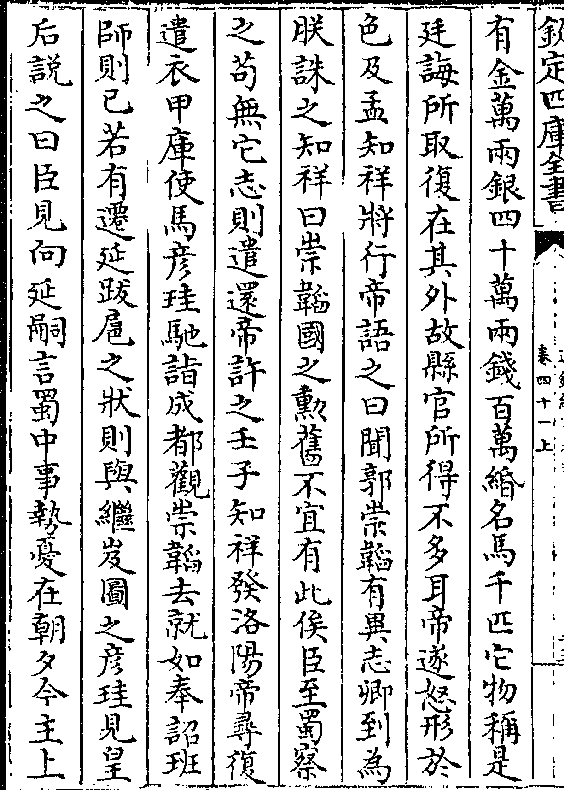 欽定四庫全書
卷四十一上
有金萬兩銀四十萬兩錢百萬緡名馬千匹它物稱是
廷誨所取復在其外故縣官所得不多耳帝遂怒形於
色及孟知祥將行帝語之曰聞郭崇韜有異志卿到為
朕誅之知祥曰崇韜國之勲舊不宜有此俟臣至蜀察
之苟無它志則遣還帝許之壬子知祥發洛陽帝尋復
遣衣甲庫使馬彦珪馳詣成都觀崇韜去就如奉詔班
師則已若有遷延跋扈之狀則與繼岌圖之彦珪見皇
后説之曰臣見向延嗣言蜀中事勢憂在朝夕今主上